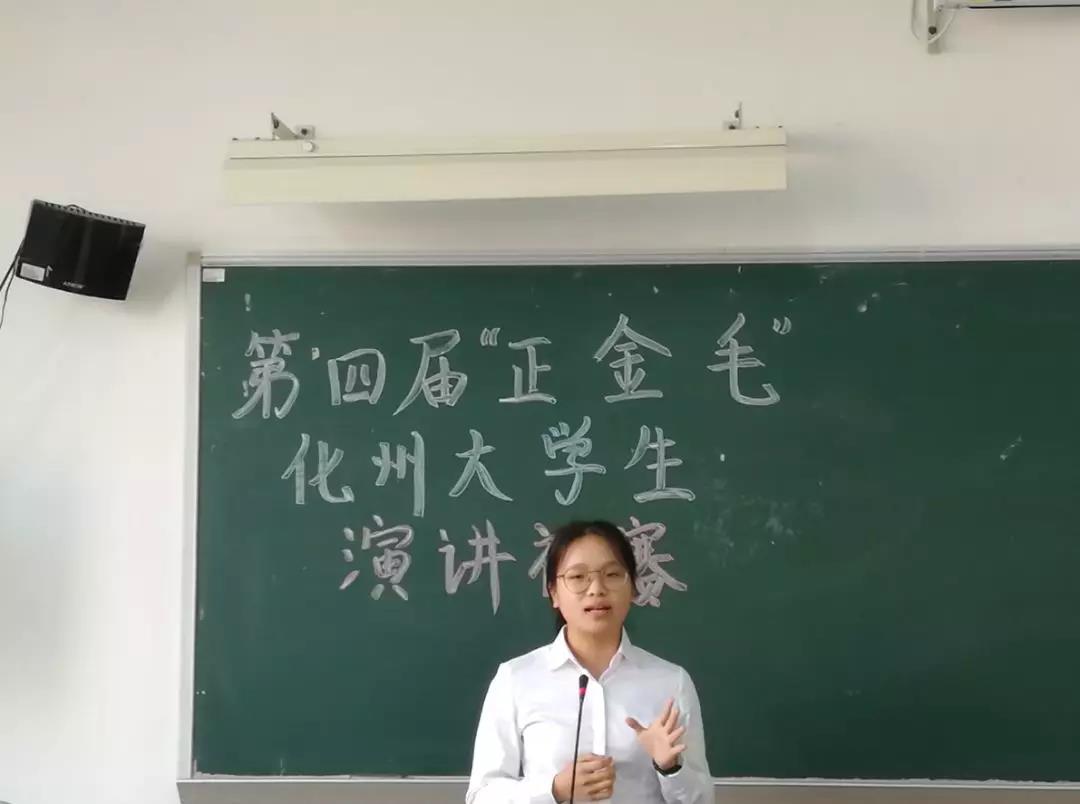 第四届“正金毛”
化州大学生
演讲初赛